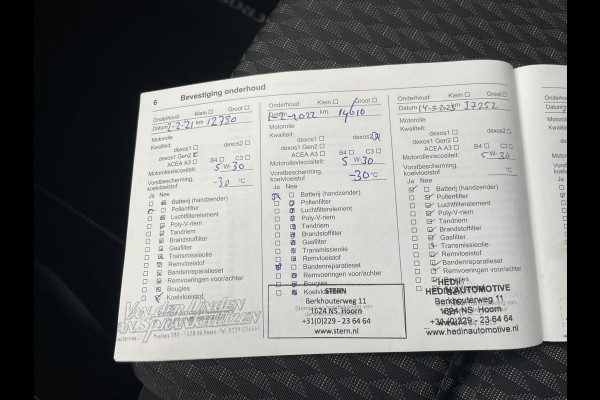 6 Bevestiging onderhoud
Onderhoud: Klein Groot
Datum 2-2-21 km 12780
Motorolie
Kwaliteit:
dexos1 dexos2
dexos1 Gen2
ACEA A3 B4 C3
Motorolieviscositeit: 5 W-30
Vorstbescherming
koelvloeistof -30 °C
Ja Nee
Batterij (handzender)
Pollenfilter
Luchtfilterelement
Poly-V-riem
Tandriem
Brandstoffilter
Gasfilter
Transmissieolie
Remvloeistof
Bandenreparatieset
Remvoeringen voor/achter
Bougies
Koelvloeistof
Onderhoud: Klein Groot
Datum 1-2-2022 km 14010
Motorolie
Kwaliteit:
dexos1 dexos2
dexos1 Gen2
ACEA A3 B4 C3
Motorolieviscositeit: 5 W-30
Vorstbescherming
koelvloeistof -30 °C
Ja Nee
Batterij (handzender)
Pollenfilter
Luchtfilterelement
Poly-V-riem
Tandriem
Brandstoffilter
Gasfilter
Transmissieolie
Remvloeistof
Bandenreparatieset
Remvoeringen voor/achter
Bougies
STERN
Berkhouterweg 11
1624 NS Hoorn
+31(0)229 - 23 64 64
www.stern.nl
Onderhoud: Klein Groot
Datum 14-3-2023 km 17252
Motorolie
Kwaliteit:
dexos1 dexos2
dexos1 Gen2
ACEA A3 B4 C3
Motorolieviscositeit: 5 W-30
Vorstbescherming
koelvloeistof °C
Ja Nee
Batterij (handzender)
Pollenfilter
Luchtfilterelement
Poly-V-riem
Tandriem
Brandstoffilter
Gasfilter
Transmissieolie
Remvloeistof
Bandenreparatieset
Remvoeringen voor/achter
Bougies
HEDIN AUTOMOTIVE
Berkhouterweg 11
1624 NS Hoorn
+31(0)229 - 23 64 64
www.hedinautomotive.nl